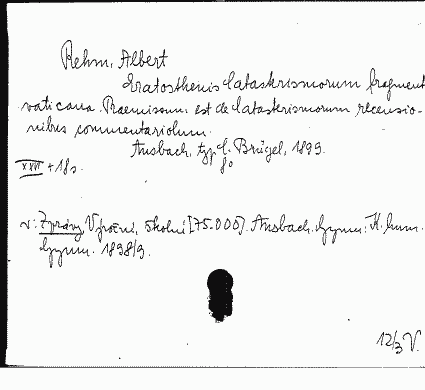 Rehm, Albert
Eratosthenis Catasterismorum fragment
vaticana. Praemissum est de Catasterismorum recensio-
nibus commentariolum.
Ansbach, typ. C. Brügel, 1899.
8°
XXVI + 18 s.
v: Zprávy Výroční, školní [75.000]. Ansbach. Gymn: K. hum.
Gymn. 1898/9.
12/3 V.